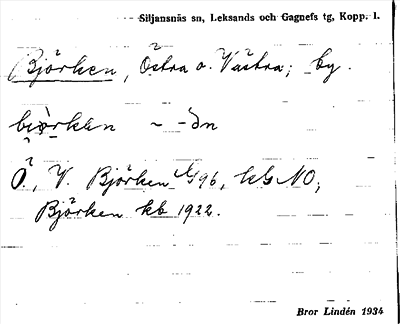 Siljansnäs sn, Leksands och Gagnefs tg, Kopp. l.
Björken, Östra o. Västra; by.
biörkän ~ -ən
Ö., V. Björken G96, kG NO;
Björken kb 1922.
Bror Lindén 1934